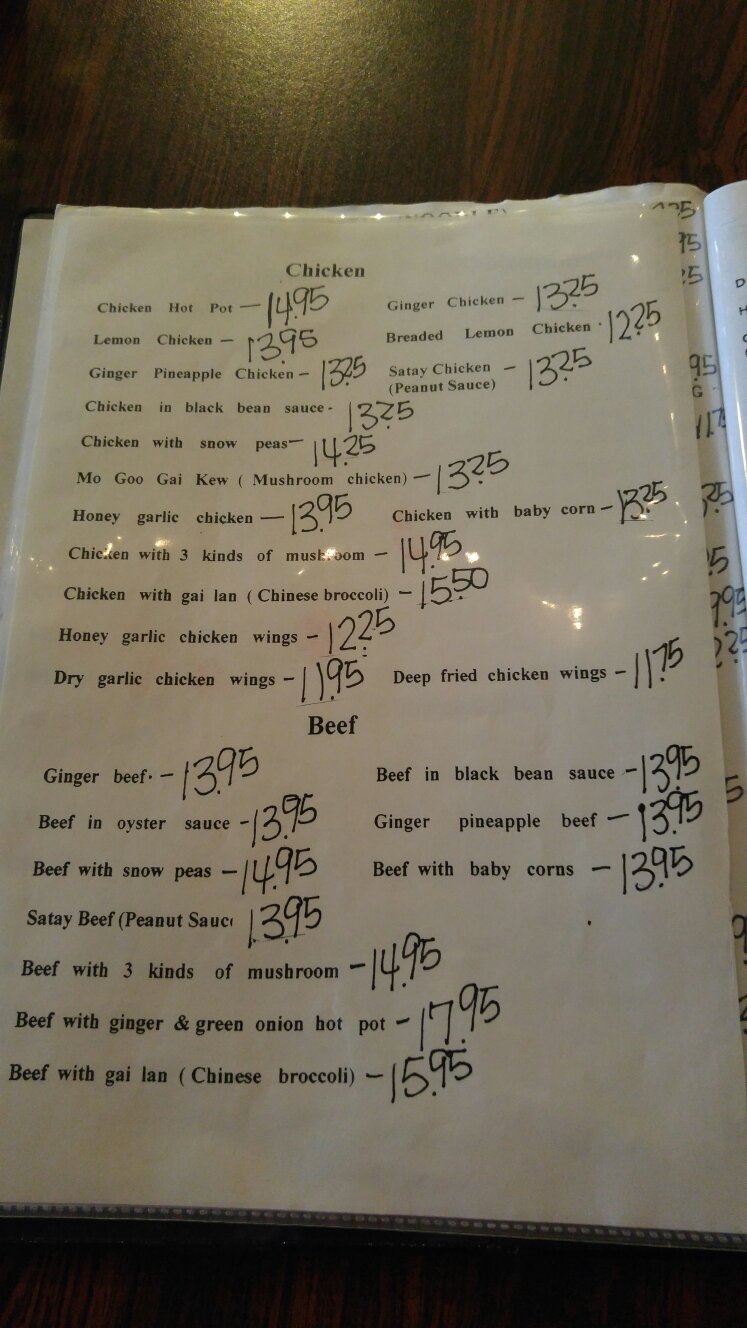 Chicken
Chicken Hot Pot — 14.95 Ginger Chicken – 13.25
Lemon Chicken – 13.95 Breaded Lemon Chicken · 12.25
Ginger Pineapple Chicken – 13.25 Satay Chicken – 13.25
(Peanut Sauce)
Chicken in black bean sauce - 13.25
Chicken with snow peas — 14.25
Mo Goo Gai Kew ( Mushroom chicken) — 13.25
Honey garlic chicken — 13.95 Chicken with baby corn – 13.25
Chicken with 3 kinds of mushroom – 14.95
Chicken with gai lan ( Chinese broccoli) – 15.50
Honey garlic chicken wings – 12.25
Dry garlic chicken wings – 11.95 Deep fried chicken wings – 11.75
Beef
Ginger beef · – 13.95 Beef in black bean sauce – 13.95
Beef in oyster sauce - 13.95 Ginger pineapple beef — 13.95
Beef with snow peas – 14.95 Beef with baby corns — 13.95
Satay Beef (Peanut Sauc 13.95
Beef with 3 kinds of mushroom – 14.95
Beef with ginger & green onion hot pot – 17.95
Beef with gai lan ( Chinese broccoli) – 15.95